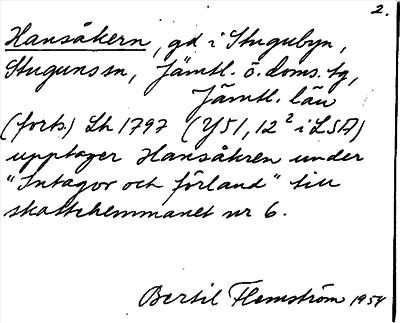 2.
Hansåkern, gd i Stugubyn,
Stuguns sn, Jämtl. ö. doms. tg,
Jämtl. län
(forts.) Lh 1797 (Y51, 12² i LSA)
upptager Hansåkren under
"Intagor och förland" till
skattehemmanet nr 6.
Bertil Flemström 1954